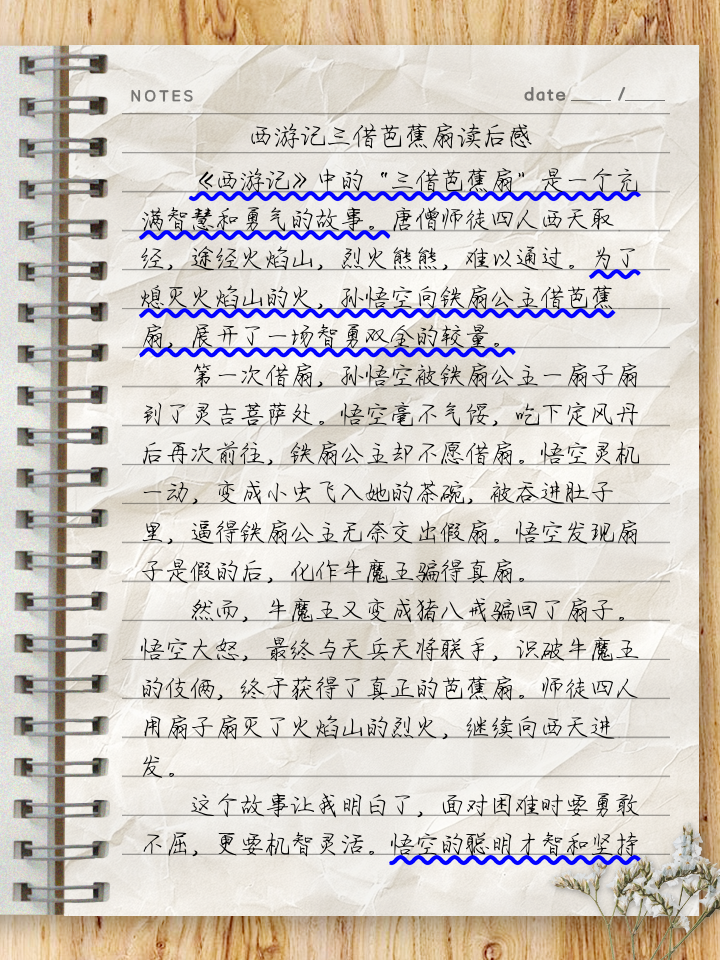 NOTES
date ____ /____
西游记三借芭蕉扇读后感
《西游记》中的“三借芭蕉扇”是一个充
满智慧和勇气的故事。唐僧师徒四人西天取
经，途经火焰山，烈火熊熊，难以通过。为了
熄灭火焰山的火，孙悟空向铁扇公主借芭蕉
扇，展开了一场智勇双全的较量。
第一次借扇，孙悟空被铁扇公主一扇子扇
到了灵吉菩萨处。悟空毫不气馁，吃下定风丹
后再次前往，铁扇公主却不愿借扇。悟空灵机
一动，变成小虫飞入她的茶碗，被吞进肚子
里，逼得铁扇公主无奈交出假扇。悟空发现扇
子是假的后，化作牛魔王骗得真扇。
然而，牛魔王又变成猪八戒骗回了扇子。
悟空大怒，最终与天兵天将联手，识破牛魔王
的伎俩，终于获得了真正的芭蕉扇。师徒四人
用扇子扇灭了火焰山的烈火，继续向西天进
发。
这个故事让我明白了，面对困难时要勇敢
不屈，更要机智灵活。悟空的聪明才智和坚持